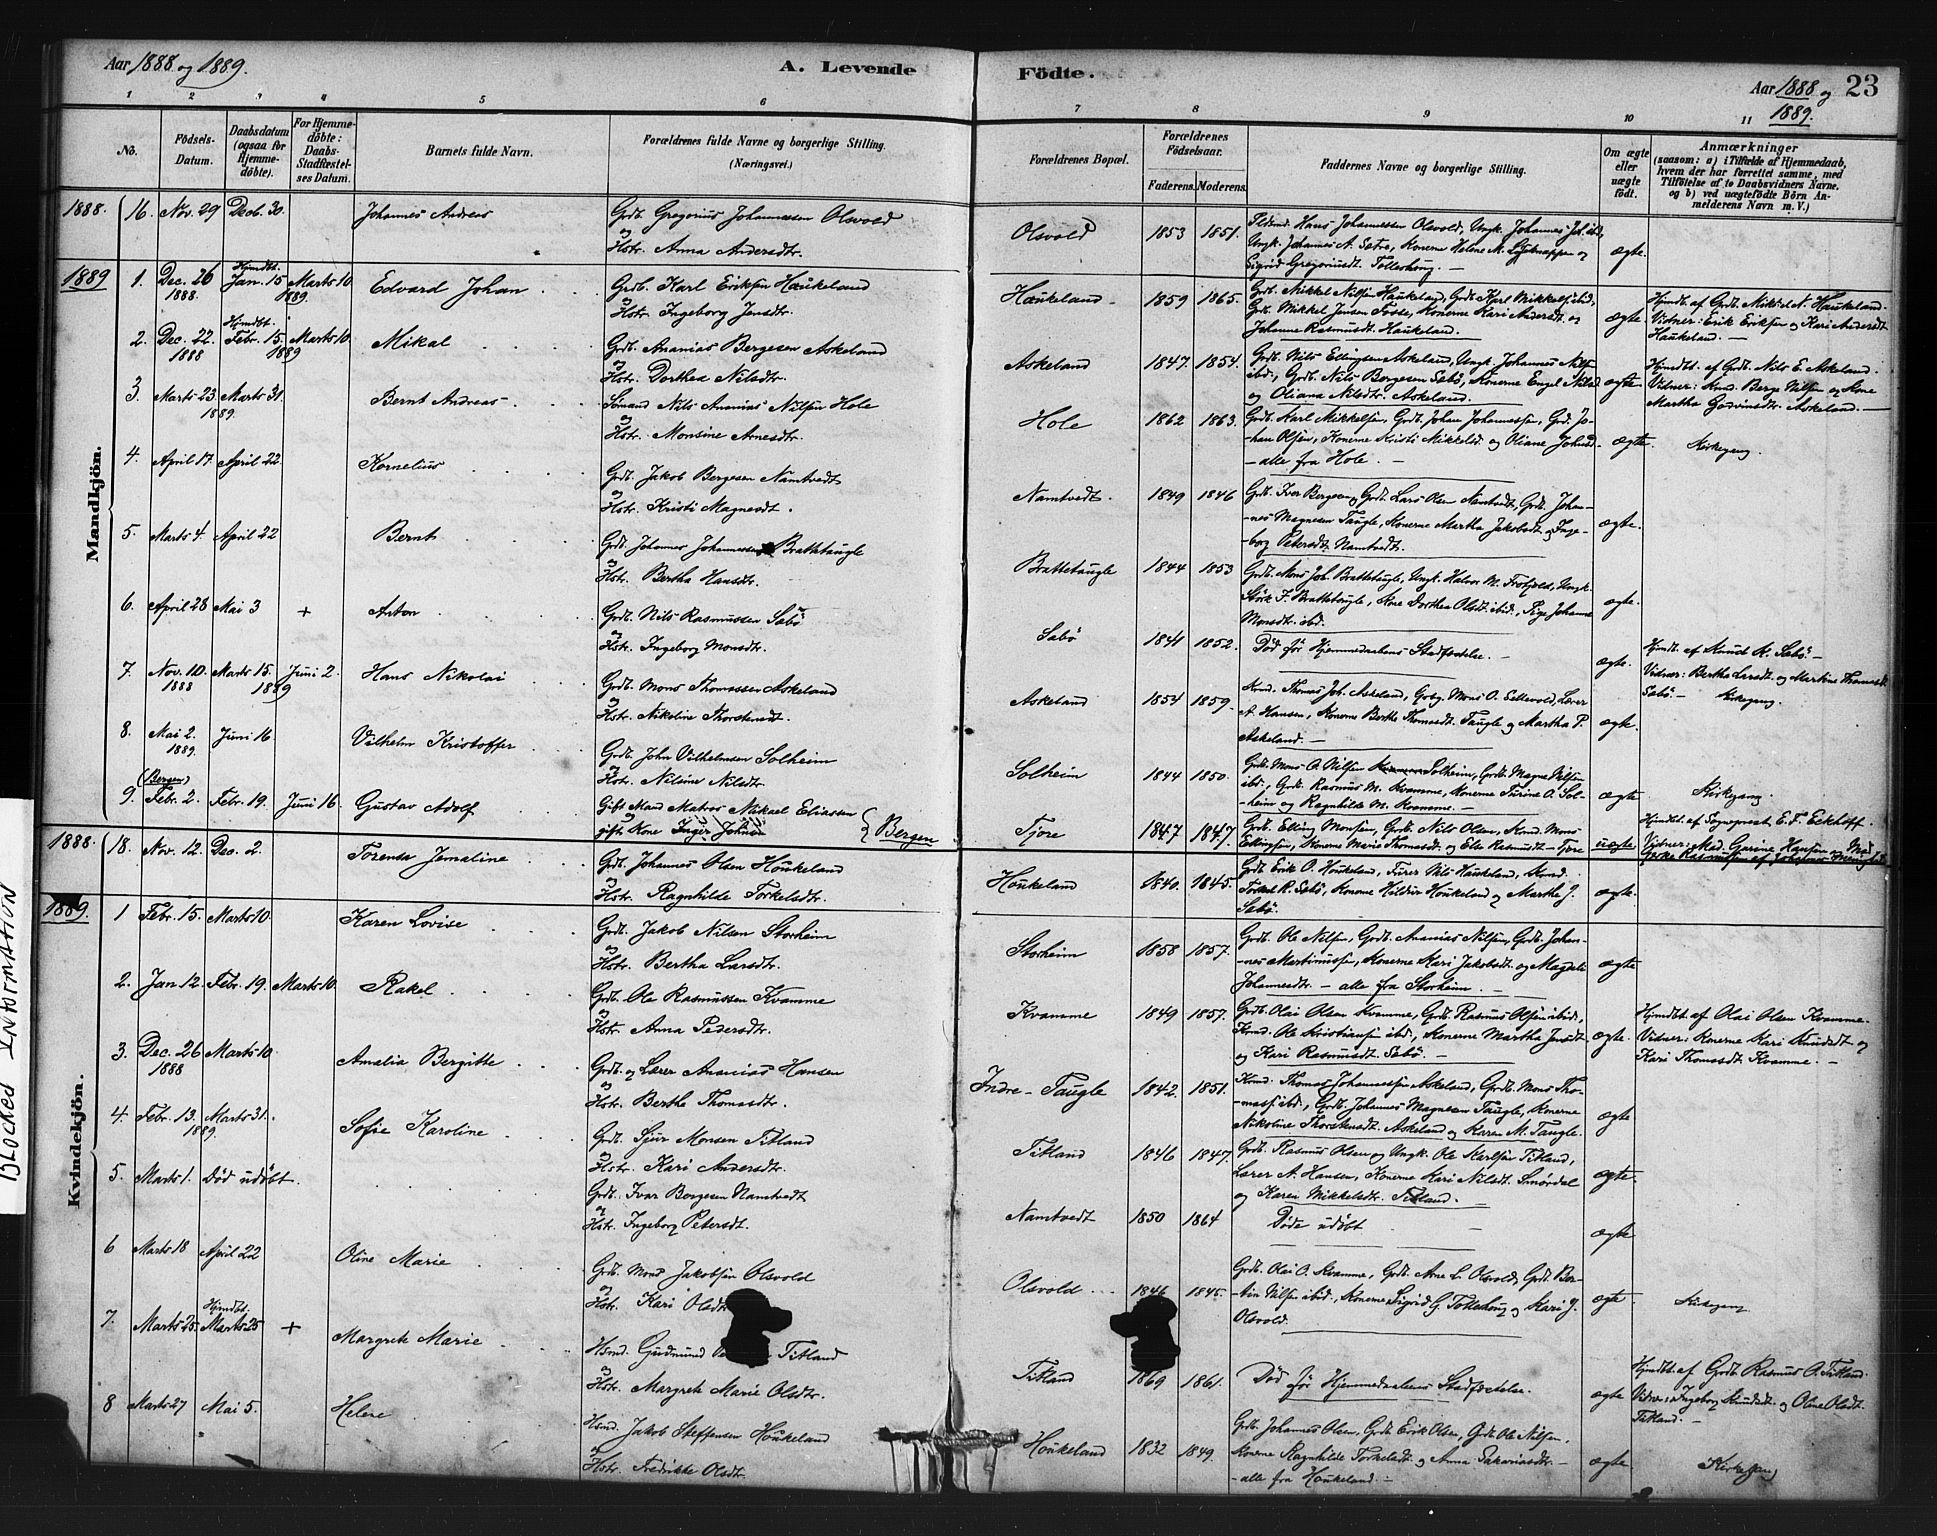 Aar 1888 og 1889.
A. Levende
Födte.
Aar 1888 og 1889.
23
1 2 3 4 5 6 7 8 9 10 11
No.
Födsels-Datum.
Daabsdatum (ogsaa for Hjemme-döbte).
For Hjemme-döbte: Daabs-Stadfæstel-ses Datum.
Barnets fulde Navn.
Forældrenes fulde Navne og borgerlige Stilling. (Næringsvei.)
Forældrenes Bopæl.
Forældrenes Födselsaar.
Faderens. Moderens.
Faddernes Navne og borgerlige Stilling.
Om ægte eller uægte födt.
Anmærkninger
(saasom: a) i Tilfælde af Hjemmedaab, hvem der har forrettet samme, med Tilföielse af to Daabsvidners Navne, og b) ved uægtefödte Börn An-melderens Navn m. V.)
Mandkjön.
1888. 16. Nov. 29 Decb. 30. Johannes Andreas
Grdb. Gregorius Johannessen Olsvold
og
Hstr. Anna Andersdtr.
Olsvold 1853 1851.
Hans Johannessen Olsvold, Ungk. Johannes Joh. ibid,
Ungk. Johannes A. Sætre, Konerne Helene M.
Sigrid Gregoriusdt. Totleskoug. —
ægte.
1889 1. Dec. 26 1888. Hjmdbt. Jan. 15 1889. Marts 10 Edvard Johan
Grdb. Karl Eriksen Haukeland
og
Hstr. Ingeborg Jensdtr.
Haukeland 1859 1865.
Grdb. Mikkel Nilsen Haukeland, Grdb. Karl Mikkelsen ibid,
Grdb. Mikkel Jensen Fosse, Konerne Kari Andersdt. og
Johanne Rasmusdt. Haukeland.
ægte.
Hjmdbt. af Grdb. Mikkel N. Haukeland.
Vidner: Erik Eriksen og Kari Andersdt.
Haukeland. —
2. Dec. 22. 1888 Hjmdbt. Febr. 15. 1889 Marts 10 Mikal
Grdb. Ananias Bergesen Askeland
og
Hstr. Dorthea Nilsdtr.
Askeland 1847. 1854.
Grdb. Nils Ellingsen Askeland, Ungk. Johannes Nilsen
ibid., Grdb. Nils Borgesen Sæbö, Konerne Engel Nilsd.
og Oliana Nilsdtr. Askeland.
ægte.
Hjmdbt. af Grdb. Nils E. Askeland.
Vidner: Kmd. Berge Nilsen og Kone
Martha Godvinsdtr. Askeland. —
3. Marts 23. 1889. Marts 31. Bernt Andreas
Sömand Nils Ananias Nilsen Hole
og
Hstr. Monsine Arnesdtr.
Hole 1862 1863.
Grdb. Karl Mikkelsen, Grdb. Johan Johannessen, Grd. Jo-
han Olsen, Konerne Kristi Mikkelsd. og Oliane Johnsd.
— alle fra Hole. —
ægte.
Kirkegang.
4. April 17. April 22. Kornelius
Grdb. Jakob Bergesen Namtvedt
og
Hstr. Kristi Magnesdt.
Namtvedt. 1849 1846
Grdb. Iver Bergesen og Grdb. Lars Olsen Namtvedt, Grdb. Johan-
-nes Magnesen Taugle, Konerne Martha Jakobsdt. og Inge-
borg Petersdt. Namtvedt.
ægte.
5. Marts 4. April 22 Bernt
Grdb. Johannes Johannessen Brattetaugle
og
Hstr. Bertha Hansdtr.
Brattetaugle 1844 1853
Grdb. Mons Joh. Brattetaugle, Ungk. Halvor M. Frotjold, Ungk.
Störk F. Brattetaugle, Kone Dorthea Olsdt. ibid., Pige Johanne
Monsdtr. ibid.
ægte.
6. April 28 Mai 3 + Anton
Grdb. Nils Rasmussen Sæbö
og
Hstr. Ingeborg Monsdtr.
Sæbö 1841 1852.
Död för Hjemmedaabens Stadfæstelse. —
ægte.
Hjmdbt. af Knud R. Sæbö. —
Vidner: Bertha Larsdt. og Martine Thomasd.
Sæbö. — Kirkegang.
7. Nov. 10. 1888 Marts 15. 1889 Juni 2. Hans Nikolai
Grdb. Mons Thomassen Askeland
og
Hstr. Nikoline Thorstensdt.
Askeland 1854 1859.
Kmd. Thomas Joh. Askeland, Grbg. Mons O. Sellevold, Lærer
A. Hansen, Konerne Berthe Thomasdt. Taugle og Martha P.
Askeland. —
ægte.
8. Mai 2. 1889. Juni 16 Vilhelm Kristoffer
Grdb. John Vilhelmsen Solheim
og
Hstr. Nilsine Nilsdt.
Solheim 1844 1850.
Grdb. Mons O. Nilsen Solheim, Grdb. Magne Nilsen
ibid., Grdb. Rasmus M. Kvamme, Konerne Turine O. Sol-
-heim og Ragnhilde M. Kvamme. —
ægte
Kirkegang.
9. (Bergen) Febr. 2. Febr. 19. Juni 16 Gustav Adolf
Gift Mand Matros Mikael Eliassen
og
gift Kone Inger Johnsen
} Bergen
Tjore 1847 1847.
Grdb. Elling Monsen, Grdb. Nils Olsen, Kmd. Mons
Ellingsen, Konerne Marie Thomasdt. og Else Rasmusdt. — Tjore
uægte.
Hjmdbt. af Sogneprest E. F. Eckhoff.
Vidner: Mad. Garine Hansen og Mad.
Kvindekjön.
1888. 18. Nov. 12. Dec. 2. Torensa Jemaline
Grdb. Johannes Olsen Houkeland
og
Hstr. Ragnhilde Torkelsdtr.
Houkeland 1840. 1845.
Grdb. Erik O. Houkeland, Furer Nils Haukeland, Kmd.
Torkel K. Sæbö, Konerne Kildur Houkeland og Marthe J.
Sæbö.
ægte.
1889. 1 Febr. 15. Marts 10. Karen Lovise
Grdb. Jakob Nilsen Storheim
og
Hstr. Bertha Larsdtr.
Storheim 1858 1857.
Grdb. Ole Nilsen, Grdb. Ananias Nilsen, Grdb. Johan-
-nes Martinussen, Konerne Kari Jakobsdt. og Magdeli
Johannesdtr. — alle fra Storheim. —
ægte
2. Jan 12. Febr. 19. Marts 10 Rakel
Grdb. Ole Rasmussen Kvamme
og
Hstr. Anna Pedersdtr.
Kvamme 1849 1857.
Grdb. Olai Olsen Kvamme, Grdb. Rasmus Olsen ibid.,
Kmd. Ole Kristiansen ibid., Konerne Martha Jensdt.
og Kari Rasmusdt. Sæbö. —
ægte.
Hjmdbt. af Olai Olsen Kvamme.
Vidner: Konerne Kari Knudsdt og
Kari Thomasdt. Kvamme. —
3. Dec. 26 1888 Marts 10 Amalia Bergitte
Grdb. og Lærer Ananias Hansen
og
Hstr. Berthe Thomasdtr.
Indre-Taugle 1842. 1851.
Kmd. Thomas Johannessen Askeland, Grdb. Mons Tho-
-massen ibid., Grdb. Johannes Magnesen Taugle, Konerne
Nikoline Thorstensdt. Askeland og Karen M. Taugle.
ægte
4. Febr. 13. Marts 31. 1889. Sofie Karoline
Grdb. Sjur Monsen Titland
og
Hstr. Kari Andersdtr.
Titland 1846 1847.
Grdb. Rasmus Olsen og Ungk. Ole Karlsen Titland,
Lærer A. Hansen, Konerne Kari Nilsdt. Smördal
og Karen Mikkelsdtr. Titland.
ægte.
5. Marts 1. Död udöbt.
Grdb. Ivar Borgesen Namtvedt
og
Hstr. Ingeborg Petersdt.
Namtvedt 1850 1864
Döde udöbt. —
ægte.
6 Marts 18 April 22 Oline Marie
Grdb. Mons Jakobsen Olsvold
og
Hstr. Kari Olsdt
Olsvold 1846 1845.
Grdb. Olai O. Kvamme, Grdb. Arne L. Olsvold, Grdb. Bor-
-tin Nilsen ibid., Konerne Sigrid G. Totleskoug og Kari J.
Olsvold.
ægte.
Kirkegang
7. Marts 25. Hjmdbt. Marts 25 + Margrete Marie
Hsmd. Gudmund Titland
og
Hstr. Margrete Marie Olsdtr.
Titland 1869 1861.
Död för Hjemmedaabens Stadfæstelse.
ægte
Hjmdbt. af Grdb. Rasmus O. Titland.
Vidner: Ingeborg Knudsdt. og Oline Olsdt.
Titland. —
8 Marts 27 Mai 5. Helene
Hsmd. Jakob Steffensen Houkeland
og
Hstr. Fredrikke Olsdt.
Houkeland 1832 1849.
Grdb. Johannes Olsen, Grdb. Erik Olsen, Grdb. Ole Nilsen.
Konerne Ragnhilde Torkelsdt. og Anna Sakariasdtr. —
— alle fra Houkeland. —
ægte.
Kirkegang
BLOCKED INFORMATION